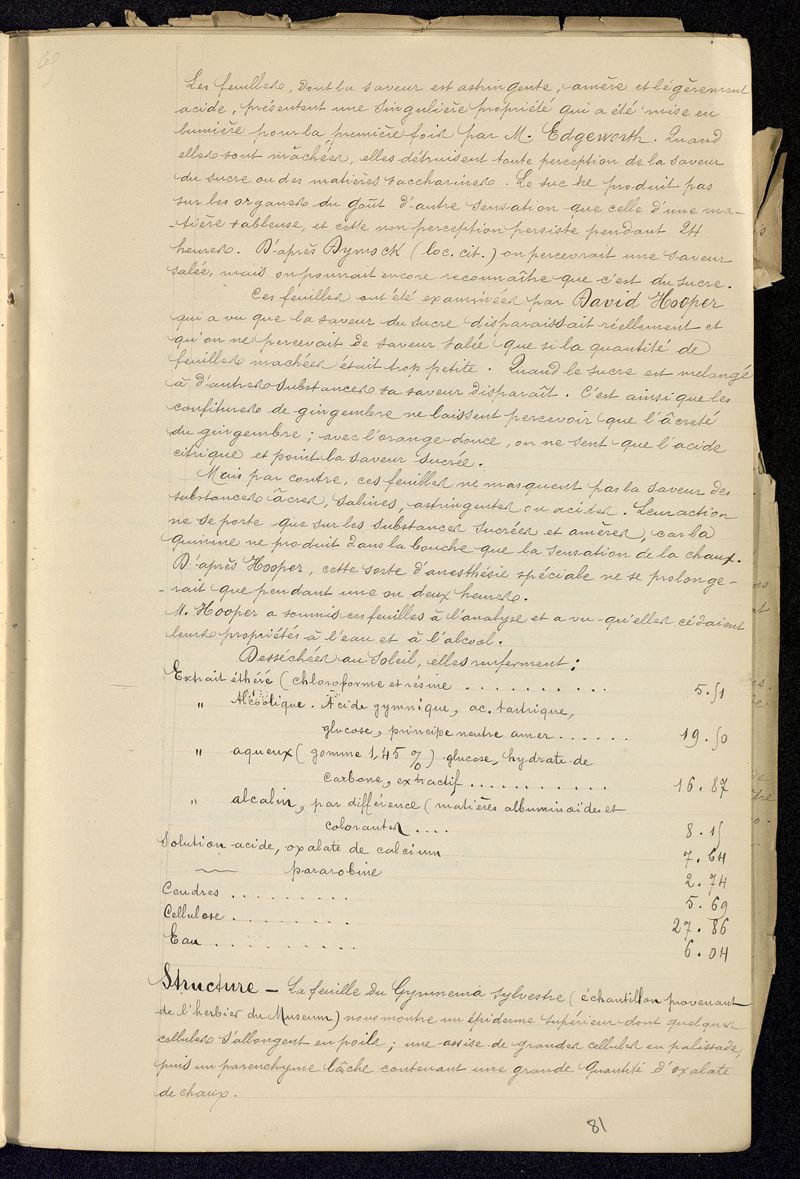 69
Les feuilles, dont la saveur est astringente, amère et légèrement
acide, présentent une singulière propriété qui a été mise en
lumière pour la première fois par M. Edgeworth. Quand
elles sont mâchées, elles détruisent toute perception de la saveur
du sucre ou des matières saccharines. Le suc ne produit pas
sur les organes du goût d'autre sensation que celle d'une ma-
tière sableuse, et cette non perception persiste pendant 24
heures. D'après Dymock (loc. cit.) on percevrait une saveur
salée, mais on pourrait encore reconnaître que c'est du sucre.
Ces feuilles ont été examinées par David Hooper
qui a vu que la saveur du sucre disparaissait réellement et
qu'on ne percevait de saveur salée que si la quantité de
feuilles machées était trop petite. Quand le sucre est melangé
à d'autres substances sa saveur disparaît. C'est ainsi que les
confitures de gingembre ne laissent percevoir que l'âcreté
du gingembre ; avec l'orange douce, on ne sent que l'acide
citrique et point la saveur sucrée.
Mais par contre, ces feuilles ne marquent pas la saveur des
substances âcres, salines, astringentes ou acides. Leur action
ne se porte que sur les substances sucrées et amères, car la
quinine ne produit dans la bouche que la sensation de la chaux.
D'après Hooper, cette sorte d'anesthésie spéciale ne se prolonge-
-rait que pendant une ou deux heures.
M. Hooper a soumis ces feuilles à l'analyse et a vu qu'elles cédaient
leurs propriétés à l'eau et à l'alcool.
Desséchées au soleil, elles renferment :
Extrait éthéré (chloroforme et résine .......... 5.51
" Alcoolique. Acide gymnique, ac. tartrique,
glucose, principe neutre amer ...... 19.50
" aqueux (gomme 1,45 %) glucose, hydrate de
carbone, extractif ........... 16.87
" alcalin, par différence (matières albuminoïdes et
colorantes .... 8.15
Solution acide, oxalate de calcium 7.64
— pararobine 2.74
Cendres ......... 5.69
Cellulose ......... 27.86
Eau ........... 6.04
Structure – La feuille du Gymnema sylvestre (échantillon provenant
de l'herbier du Museum) nous montre un épiderme supérieur dont quelques
cellules s'allongent en poils ; une assise de grandes cellules en palissade,
puis un parenchyme lâche contenant une grande quantité d'oxalate
de chaux.
81